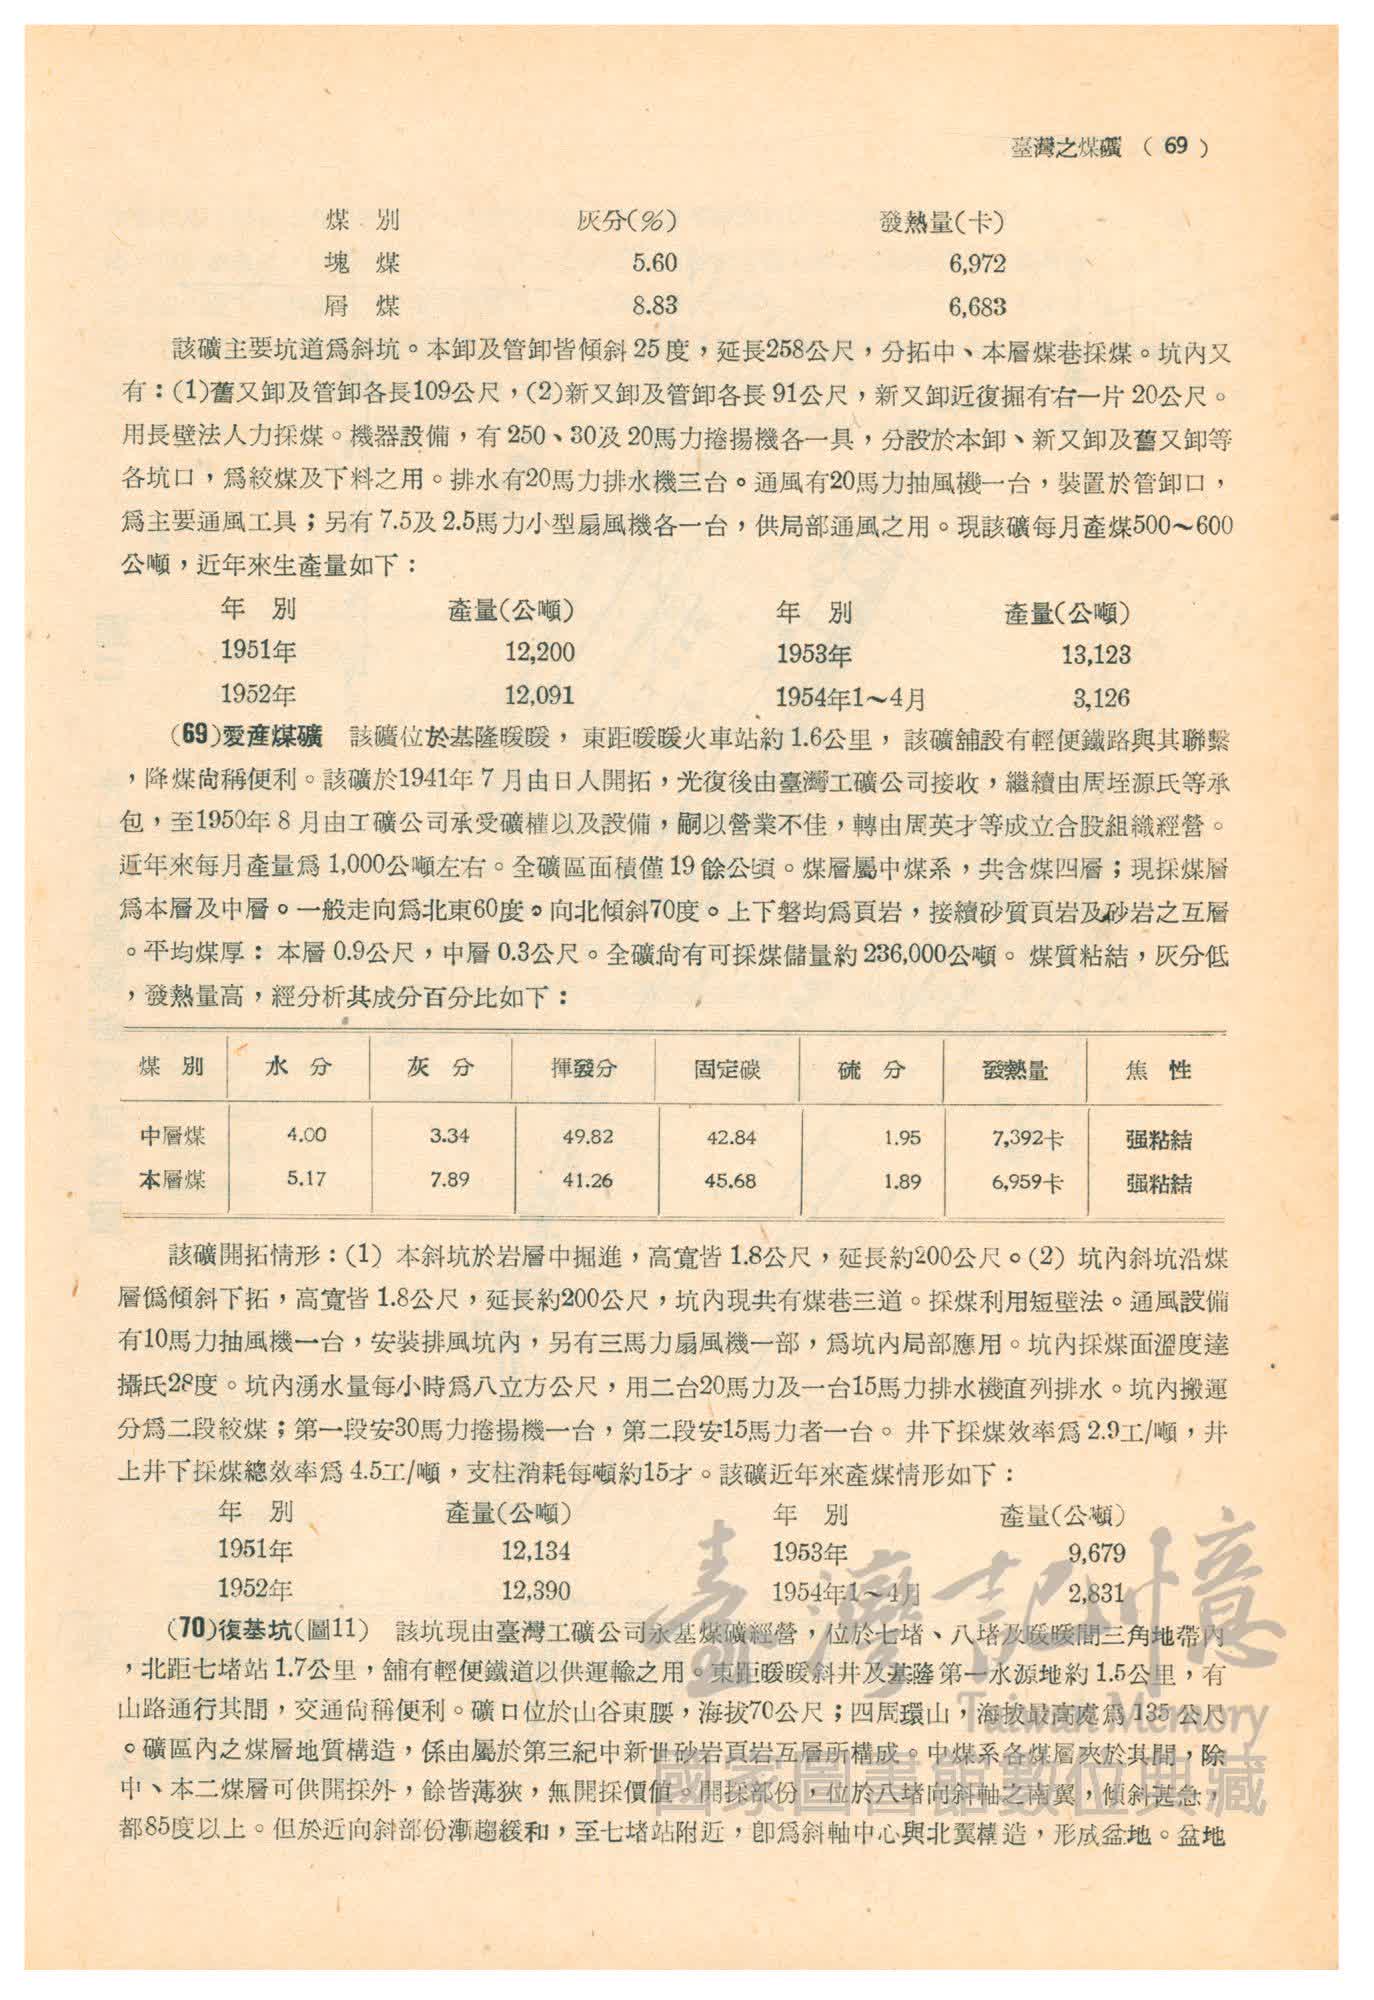 臺灣之煤礦（69）
煤 別 灰分(%) 發熱量(卡)
塊 煤 5.60 6,972
屑 煤 8.83 6,683
該礦主要坑道爲斜坑。本卸及管卸皆傾斜25度，延長258公尺，分拓中、本層煤巷採煤。坑內又
有：(1)舊又卸及管卸各長109公尺，(2)新又卸及管卸各長91公尺，新又卸近復掘有右一片20公尺。
用長壁法人力採煤。機器設備，有250、30及20馬力捲揚機各一具，分設於本卸、新又卸及舊又卸等
各坑口，爲絞煤及下料之用。排水有20馬力排水機三台。通風有20馬力抽風機一台，裝置於管卸口，
爲主要通風工具；另有7.5及2.5馬力小型扇風機各一台，供局部通風之用。現該礦每月產煤500～600
公噸，近年來生產量如下：
年 別 產量(公噸) 年 別 產量(公噸)
1951年 12,200 1953年 13,123
1952年 12,091 1954年1～4月 3,126
(69)愛產煤礦 該礦位於基隆暖暖，東距暖暖火車站約1.6公里，該礦舖設有輕便鐵路與其聯繫
，降煤尙稱便利。該礦於1941年7月由日人開拓，光復後由臺灣工礦公司接收，繼續由周垤源氏等承
包，至1950年8月由工礦公司承受礦權以及設備，嗣以營業不佳，轉由周英才等成立合股組織經營。
近年來每月產量爲1,000公噸左右。全礦區面積僅19餘公頃。煤層屬中煤系，共含煤四層；現採煤層
爲本層及中層。一般走向爲北東60度。向北傾斜70度。上下磐均爲頁岩，接續砂質頁岩及砂岩之互層
。平均煤厚：本層0.9公尺，中層0.3公尺。全礦尙有可採煤儲量約236,000公噸。煤質粘結，灰分低
，發熱量高，經分析其成分百分比如下：
煤 別 水 分 灰 分 揮發分 固定碳 硫 分 發熱量 焦 性
中層煤 4.00 3.34 49.82 42.84 1.95 7,392卡 强粘結
本層煤 5.17 7.89 41.26 45.68 1.89 6,959卡 强粘結
該礦開拓情形：(1) 本斜坑於岩層中掘進，高寬皆1.8公尺，延長約200公尺。(2) 坑內斜坑沿煤
層僞傾斜下拓，高寬皆1.8公尺，延長約200公尺，坑內現共有煤巷三道。採煤利用短壁法。通風設備
有10馬力抽風機一台，安裝排風坑內，另有三馬力扇風機一部，爲坑內局部應用。坑內採煤面溫度達
攝氏28度。坑內湧水量每小時爲八立方公尺，用二台20馬力及一台15馬力排水機直列排水。坑內搬運
分爲二段絞煤；第一段安30馬力捲揚機一台，第二段安15馬力者一台。井下採煤效率爲2.9工/噸，井
上井下採煤總效率爲4.5工/噸，支柱消耗每噸約15才。該礦近年來產煤情形如下：
年 別 產量(公噸) 年 別 產量(公噸)
1951年 12,134 1953年 9,679
1952年 12,390 1954年1～4月 2,831
(70)復基坑(圖11) 該坑現由臺灣工礦公司永基煤礦經營，位於七堵、八堵及暖暖間三角地帶內
，北距七堵站1.7公里，舖有輕便鐵道以供運輸之用。東距暖暖斜井及基隆第一水源地約1.5公里，有
山路通行其間，交通尙稱便利。礦口位於山谷東腰，海拔70公尺；四周環山，海拔最高處爲135公尺
。礦區內之煤層地質構造，係由屬於第三紀中新世砂岩頁岩互層所構成。中煤系各煤層夾於其間，除
中、本二煤層可供開採外，餘皆薄狹，無開採價値。開採部份，位於八堵向斜軸之南翼，傾斜甚急，
都85度以上。但於近向斜部份漸趨緩和，至七堵站附近，卽爲斜軸中心與北翼構造，形成盆地。盆地
臺灣記憶
Taiwan Memory
國家圖書館數位典藏